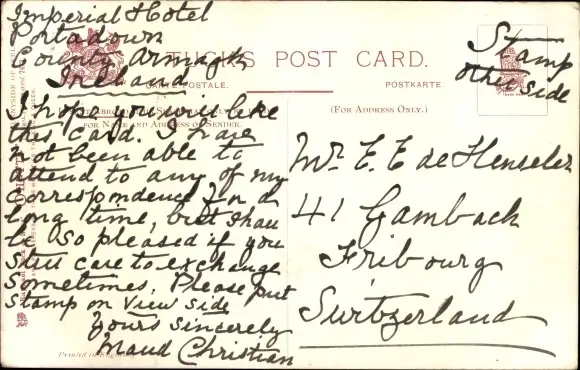 Imperial Hotel
Portadown
County Armagh
Ireland
TUCK'S POST CARD.
CARTE POSTALE.
POSTKARTE.
Stamp
other side
(FOR ADDRESS ONLY.)
FOR NAME AND ADDRESS OF SENDER.
I hope you will like
this card. I have
not been able to
attend to any of my
correspondence for a
long time, but shall
be so pleased if you
still care to exchange
sometimes. Please put
stamp on view side
Yours sincerely
Maud Christian
Mr. E. E de Henseler
41 Gambach
Fribourg
Switzerland
Printed in